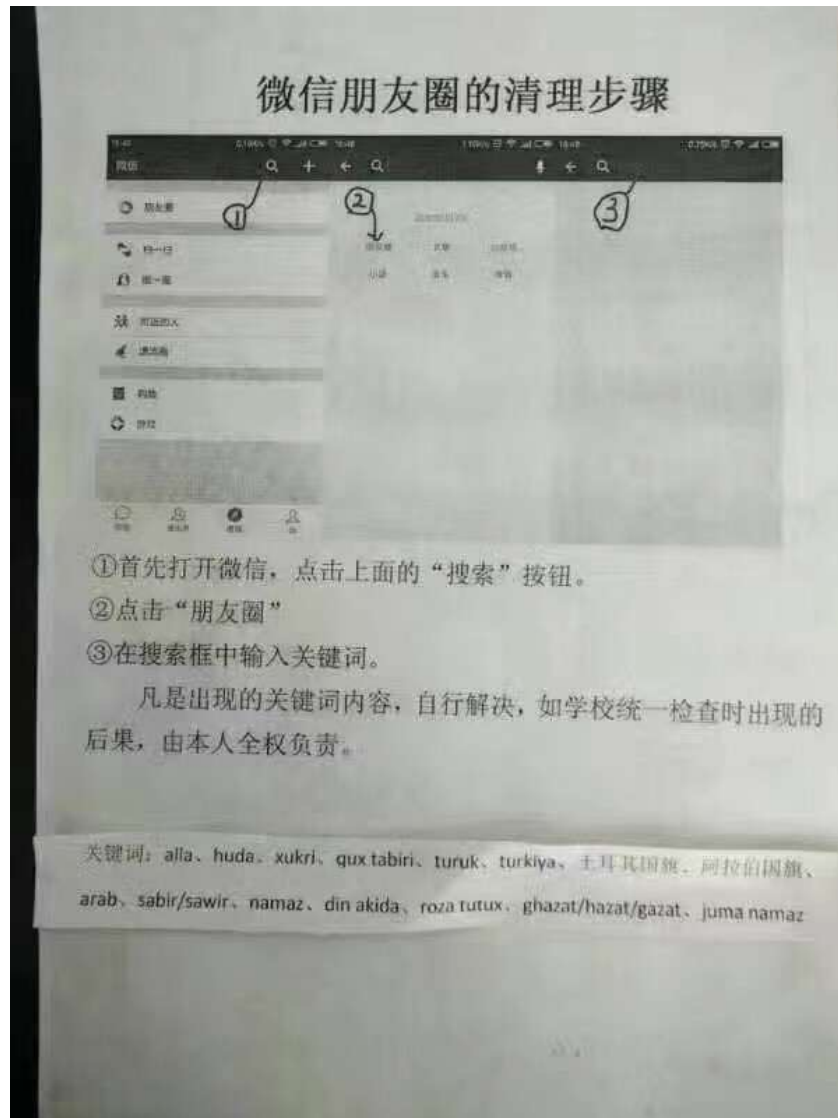 微信朋友圈的清理步骤
微信
① ② ③
朋友圈
扫一扫
摇一摇
附近的人
漂流瓶
购物
游戏
①首先打开微信，点击上面的“搜索”按钮。
②点击“朋友圈”
③在搜索框中输入关键词。
凡是出现的关键词内容，自行解决，如学校统一检查时出现的
后果，由本人全权负责。
关键词：alla、huda、xukri、qux tabiri、turuk、turkiya、土耳其国旗、阿拉伯国旗、
arab、sabir/sawir、namaz、din akida、roza tutux、ghazat/hazat/gazat、juma namaz